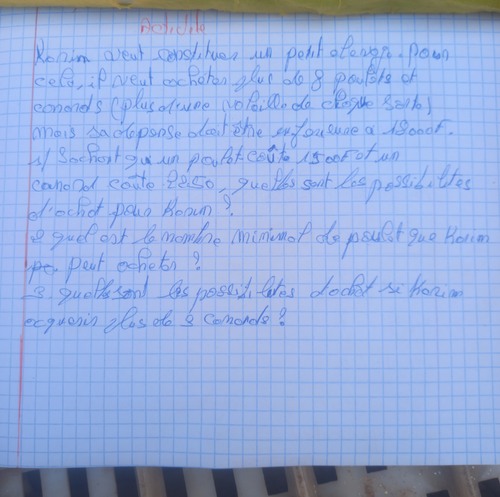 Activité
Karim veut constituer un petit élevage. pour
cela, il veut acheter plus de 8 poulets et
canards (plus d'une volaille de chaque sorte)
mais sa dépense doit être inférieure à 18000F.
1/ Sachant qu'un poulet coûte 1500F et un
canard coûte 2250, quelles sont les possibilités
d'achat pour Karim ?
2 quel est le nombre minimal de poulet que Karim
peut acheter ?
3. quelles sont les possibilités d'achat si Karim
acquérir plus de 2 canards ?